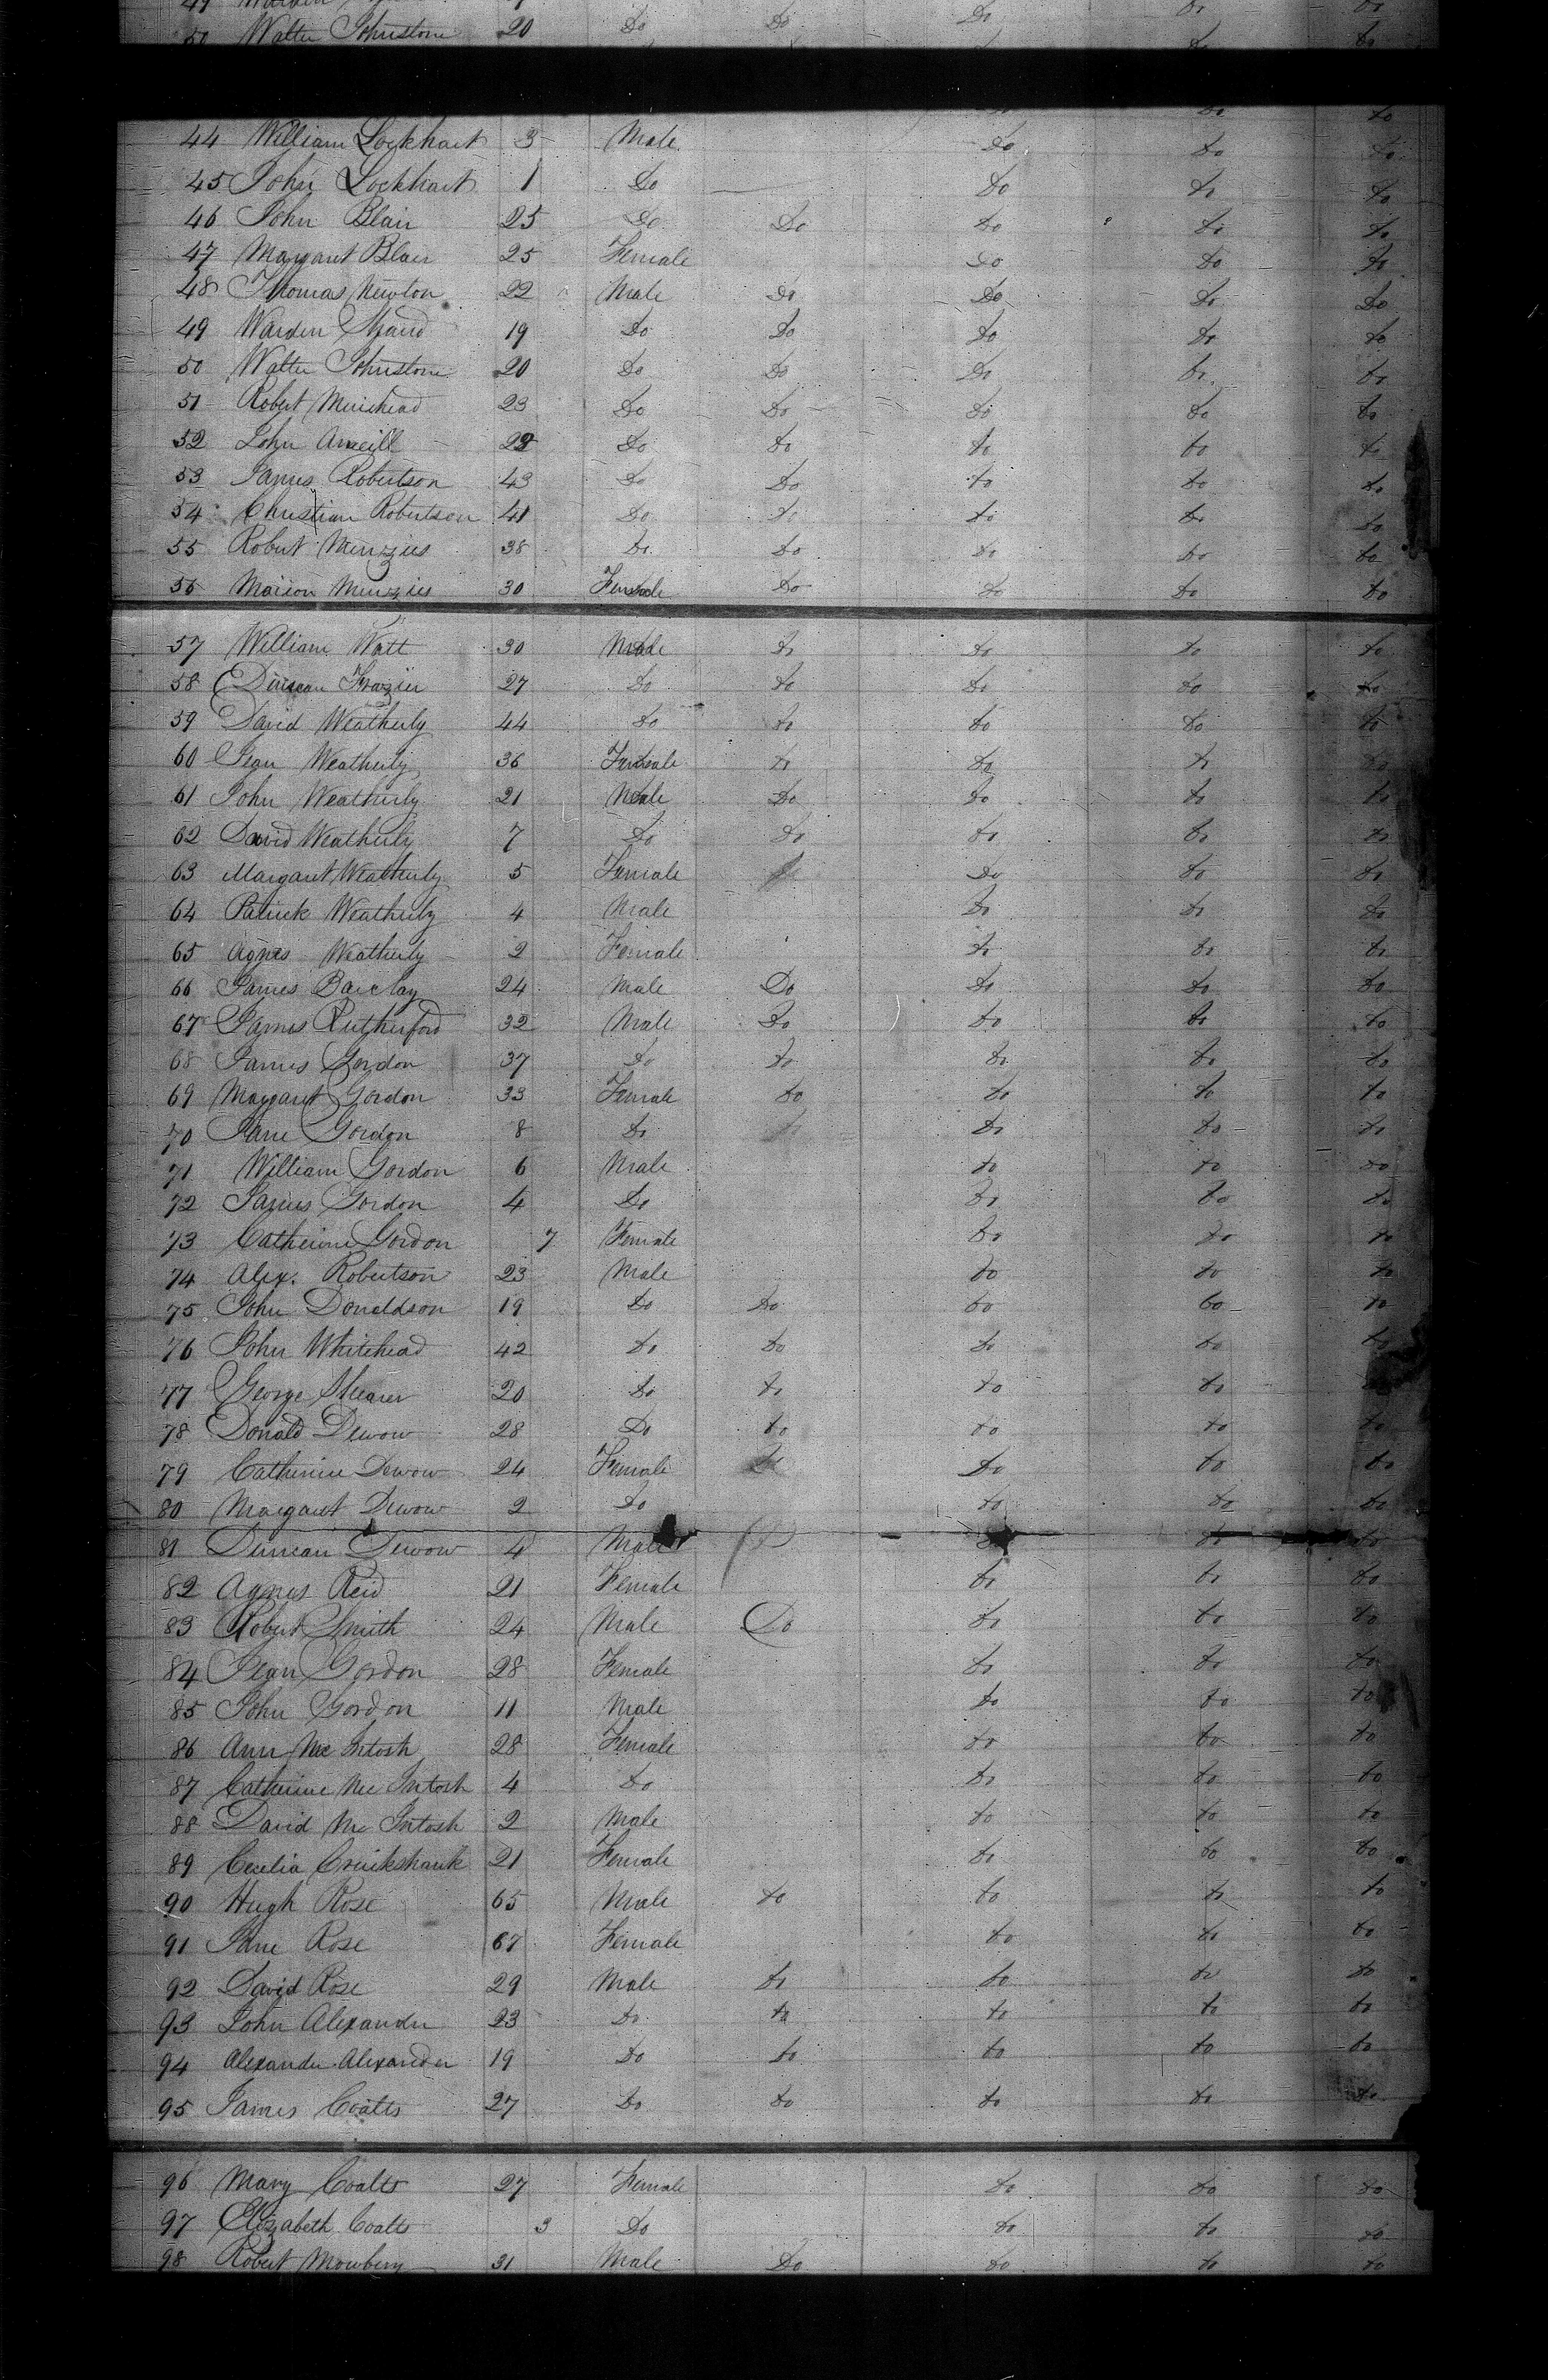 50 Walter Johnstone 20 Do Do Do Do Do
44 William Lockhart 3 Male Do Do Do
45 John Lockhart 1 Do Do Do Do
46 John Blair 25 Do Do Do Do Do
47 Margaret Blair 25 Female Do Do Do
48 Thomas Newton 22 Male Do Do Do Do
49 Warden Shand 19 Do Do Do Do Do
50 Walter Johnstone 20 Do Do Do Do Do
51 Robert Muirhead 23 Do Do Do Do Do
52 John 22 Do Do Do Do Do
53 James Robertson 43 Do Do Do Do Do
54 Christian Robertson 41 Do Do Do Do Do
55 Robert Menzies 38 Do Do Do Do Do
56 Marion Menzies 30 Female Do Do Do Do
57 William Watt 30 Male Do Do Do Do
58 Duncan Frazier 27 Do Do Do Do Do
59 David Weatherly 44 Do Do Do Do Do
60 Jean Weatherly 36 Female Do Do Do Do
61 John Weatherly 21 Male Do Do Do Do
62 David Weatherly 7 Do Do Do Do Do
63 Margaret Weatherly 5 Female Do Do Do
64 Patrick Weatherly 4 Male Do Do Do
65 Agnes Weatherly 2 Female Do Do Do
66 James Barclay 24 Male Do Do Do Do
67 James Rutherford 32 Male Do Do Do Do
68 James Gordon 37 Do Do Do Do Do
69 Margaret Gordon 33 Female Do Do Do Do
70 Jane Gordon 8 Do Do Do Do
71 William Gordon 6 Male Do Do Do
72 James Gordon 4 Do Do Do Do
73 Catherine Gordon 7 Female Do Do Do
74 Alex. Robertson 23 Male Do Do Do
75 John Donaldson 19 Do Do Do Do Do
76 John Whitehead 42 Do Do Do Do Do
77 George Shearer 20 Do Do Do Do Do
78 Donald Dewow 28 Do Do Do Do Do
79 Catherine Dewow 24 Female Do Do Do
80 Margaret Dewow 2 Do Do Do Do
81 Duncan Dewow 4 Male Do Do
82 Agnes Reid 21 Female Do Do Do
83 Robert Smith 24 Male Do Do Do Do
84 Jean Gordon 28 Female Do Do Do
85 John Gordon 11 Male Do Do Do
86 Ann McIntosh 28 Female Do Do Do
87 Catherine McIntosh 4 Do Do Do Do
88 David McIntosh 2 Male Do Do Do
89 Cecelia Cruikshank 21 Female Do Do Do
90 Hugh Rose 65 Male Do Do Do Do
91 Jane Rose 67 Female Do Do Do
92 David Rose 29 Male Do Do Do Do
93 John Alexander 23 Do Do Do Do Do
94 Alexander Alexander 19 Do Do Do Do Do
95 James Coatts 27 Do Do Do Do Do
96 Mary Coatts 27 Female Do Do Do
97 Elizabeth Coatts 3 Do Do Do Do
98 Robert Mowbery 31 Male Do Do Do Do